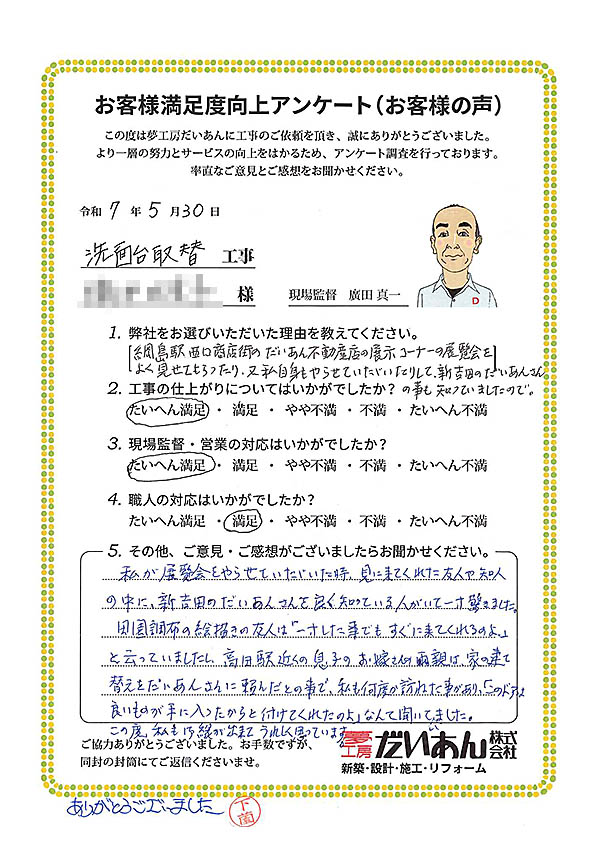 お客様満足度向上アンケート（お客様の声）
この度は夢工房だいあんに工事のご依頼を頂き、誠にありがとうございました。
より一層の努力とサービスの向上をはかるため、アンケート調査を行っております。
率直なご意見とご感想をお聞かせください。
令和 7 年 5 月 30 日
洗面台取替 工事
様
現場監督 廣田 真一
D
1. 弊社をお選びいただいた理由を教えてください。
綱島駅西口商店街の だいあん不動産店の展示コーナーの展覧会を
よく見せてもらったり、又私自身もやらせていただいたりして、新吉田のだいあんさん
の事も知っていましたので。
2. 工事の仕上がりについてはいかがでしたか？
たいへん満足 ・ 満足 ・ やや不満 ・ 不満 ・ たいへん不満
3. 現場監督・営業の対応はいかがでしたか？
たいへん満足 ・ 満足 ・ やや不満 ・ 不満 ・ たいへん不満
4. 職人の対応はいかがでしたか？
たいへん満足 ・ 満足 ・ やや不満 ・ 不満 ・ たいへん不満
5. その他、ご意見・ご感想がございましたらお聞かせください。
私が展覧会をやらせていただいた時、見に来てくれた友人や知人
の中に、新吉田のだいあんさんを良く知っている人がいて一寸驚きました。
田園調布の絵描きの友人は「一寸した事でもすぐに来てくれるのよ」
と云っていましたし 高田駅近くの息子のお嫁さんの両親は、家の建て
替えをだいあんさんに頼んだとの事で、私も何度か訪れた事があり、「このドアは
良いものが手に入ったからと付けてくれたのよ」なんて聞いてました。
この度、私も が出来て うれしく思っています
ご協力ありがとうございました。お手数ですが、
同封の封筒にてご返信くださいませ。
夢工房 だいあん 株式会社
新築・設計・施工・リフォーム
ありがとうございました 下薗